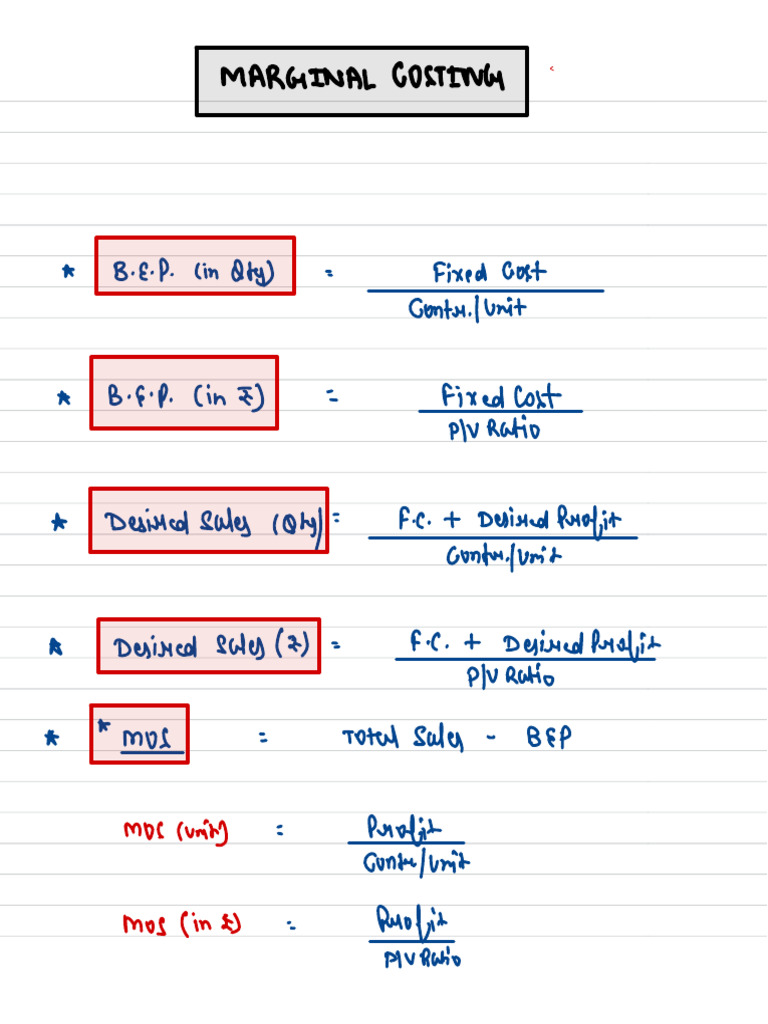 MARGINAL COSTING
* B.E.P. (in Qty) = Fixed Cost
Contr./Unit
* B.E.P. (in ₹) = Fixed Cost
P/V Ratio
* Desired Sales (Qty) = F.C. + Desired Profit
Contr./Unit
* Desired Sales (₹) = F.C. + Desired Profit
P/V Ratio
* * MOS = Total Sales - BEP
MOS (Unit) = Profit
Contr/Unit
MOS (in ₹) = Profit
P/V Ratio